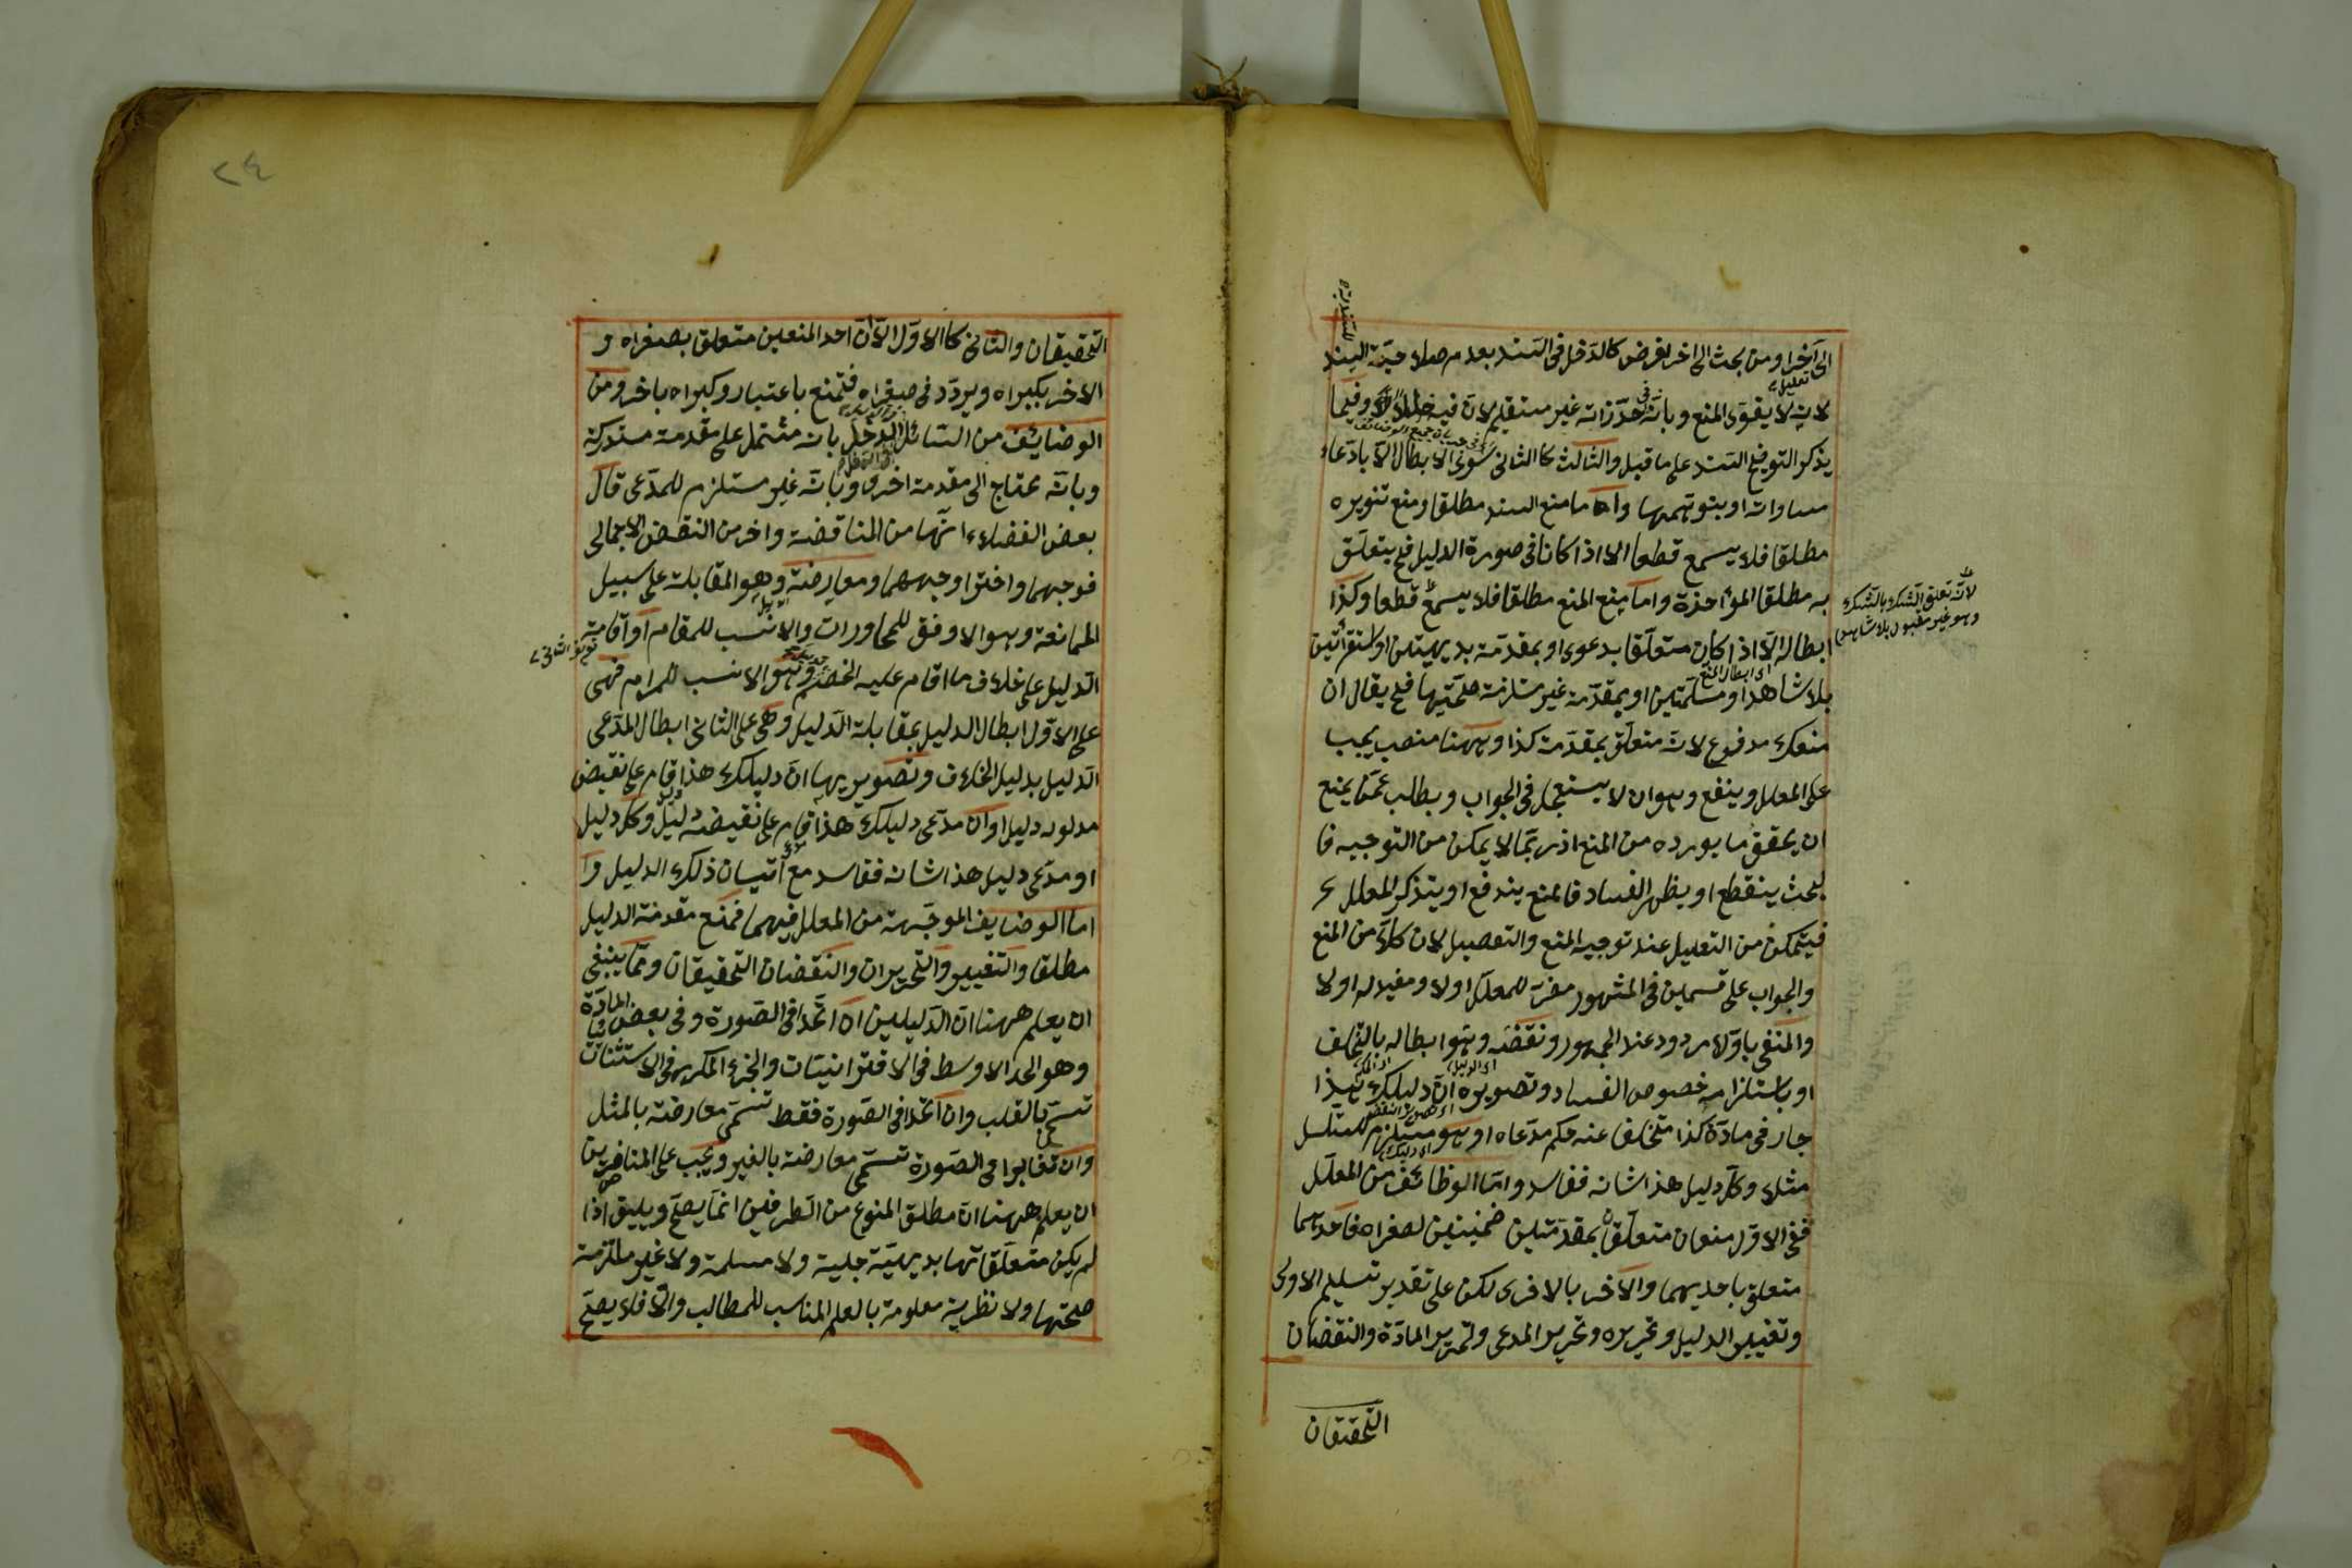 الى آخر او من بحث الى اخر لغرض كالدخل فى السند بعدم صلاحية السند
لانه لا يقوى المنع وبانه فى حد ذاته غير مستقيم لان فيه خللا وفيما
يذكر لتوضيح السند على ما قيل والثالث كالثانى سوى الابطال الا بادعاء
مساواته او بتوهمها واما منع السند مطلقا ومنع تنويره
مطلقا فلا يسمع قطعا الا اذا كانا فى صورة الدليل فح يتعلق
به مطلقا المؤاخذة واما منع المنع مطلقا فلا يسمع قطعا وكذا
ابطاله الا اذا كان متعلقا بدعوى او بمقدمة بديهيتين او استقرائيتين
بلا شاهد او مسلمتين او بمقدمة غير ملتزمة صحتها فح يقال ان
منعك مدفوع لانه متعلق بمقدمة كذا وههنا منصب يجب
على المعلل وينفع وهو ان لا يستعجل فى الجواب ويطلب عمن يمنع
ان يحقق ما يورده من المنع اذ ربما لا يمكن من التوجيه فا
لبحث ينقطع او يظهر الفساد فالمنع يندفع او يتذكر المعلل ح
فيتمكن من التعليل عند توجيه المنع والتفصيل لان كلا من المنع
والجواب على قسمين فى المشهور مضر للمعلل اولا ومفيد له اولا
والمنفى باولا مردود عند الجمهور ونقضه وهو ابطاله بالتخلف
او باستلزامه خصوص الفساد وتصويره ان دليلك هذا
جار فى مادة كذا متخلفا عنه حكم مدعاه او هو مستلزم للتسلسل
مثلا وكل دليل هذا شانه ففاسد واما الوظائف من المعلل
ففى الاول منعان متعلقان بمقدمتين ضمنيتين لصغراه فاحدهما
متعلق باحديهما والاخر بالاخرى لكن على تقدير تسليم الاولى
وتغيير الدليل وتحريره وتحرير المدعى وتحرير المادة والنقضان
التحقيقان
لانه تعلق الشك بالشك
وهو غير مقبول بلا شاهد
التحقيقان والثانى كالاول الا ان احد المنعين متعلق بصغراه و
الاخر بكبراه ويردد فى صغراه فتمنع باعتبار وكبراه باخر ومن
الوضايف من السائل الدخل بانه مشتمل على مقدمة مستدركة
وبانه محتاج الى مقدمة اخرى وبانه غير مستلزم للمدعى قال
بعض الفضلاء انها من المناقضة واخر من النقض الاجمالى
فوجهما واختر اوجههما ومعارضة وهو المقابلة على سبيل
الممانعة وهو الاوفق للمحاورات والانسب للمقام او اقامة
الدليل على خلاف ما اقام عليه الخصم وهو الانسب للمرام فهى
على الاول ابطال الدليل بمقابلة الدليل وهى على الثانى ابطال المدعى
الدليل بدليل الخلاف وتصويريها ان دليلك هذا قام على نقيض
مدلوله دليل او ان مدعى دليلك هذا قام على نقيضه دليل وكل دليل
او مدعى دليل هذا شانه ففاسد مع اتيان ذلك الدليل وا
اما الوضايف الموجهة من المعلل فيهما فمنع مقدمة الدليل
مطلقا والتغيير والتحريران والنقضان التحقيقان ومما ينبغى
ان يعلم ههنا ان الدليلين ان اتحدا فى الصورة وفى بعض المادة
وهو الحد الاوسط فى الاقترانيات والجزء المكرر فى الاستثنائيات
تسمى بالقلب وان اتحدا فى الصورة فقط تسمى معارضة بالمثل
وان تغايرا فى الصورة تسمى معارضة بالغير ويجب على المناظرين
ان يعلم ههنا ان مطلق المنوع من الطرفين انما يصح ويليق اذا
لم يكن متعلقاتها بديهية جلية ولا مسلمة ولا غير ملتزمة
صحتها ولا نظرية معلومة بالعلم المناسب للمطالب والا فلا يصح
٢٤